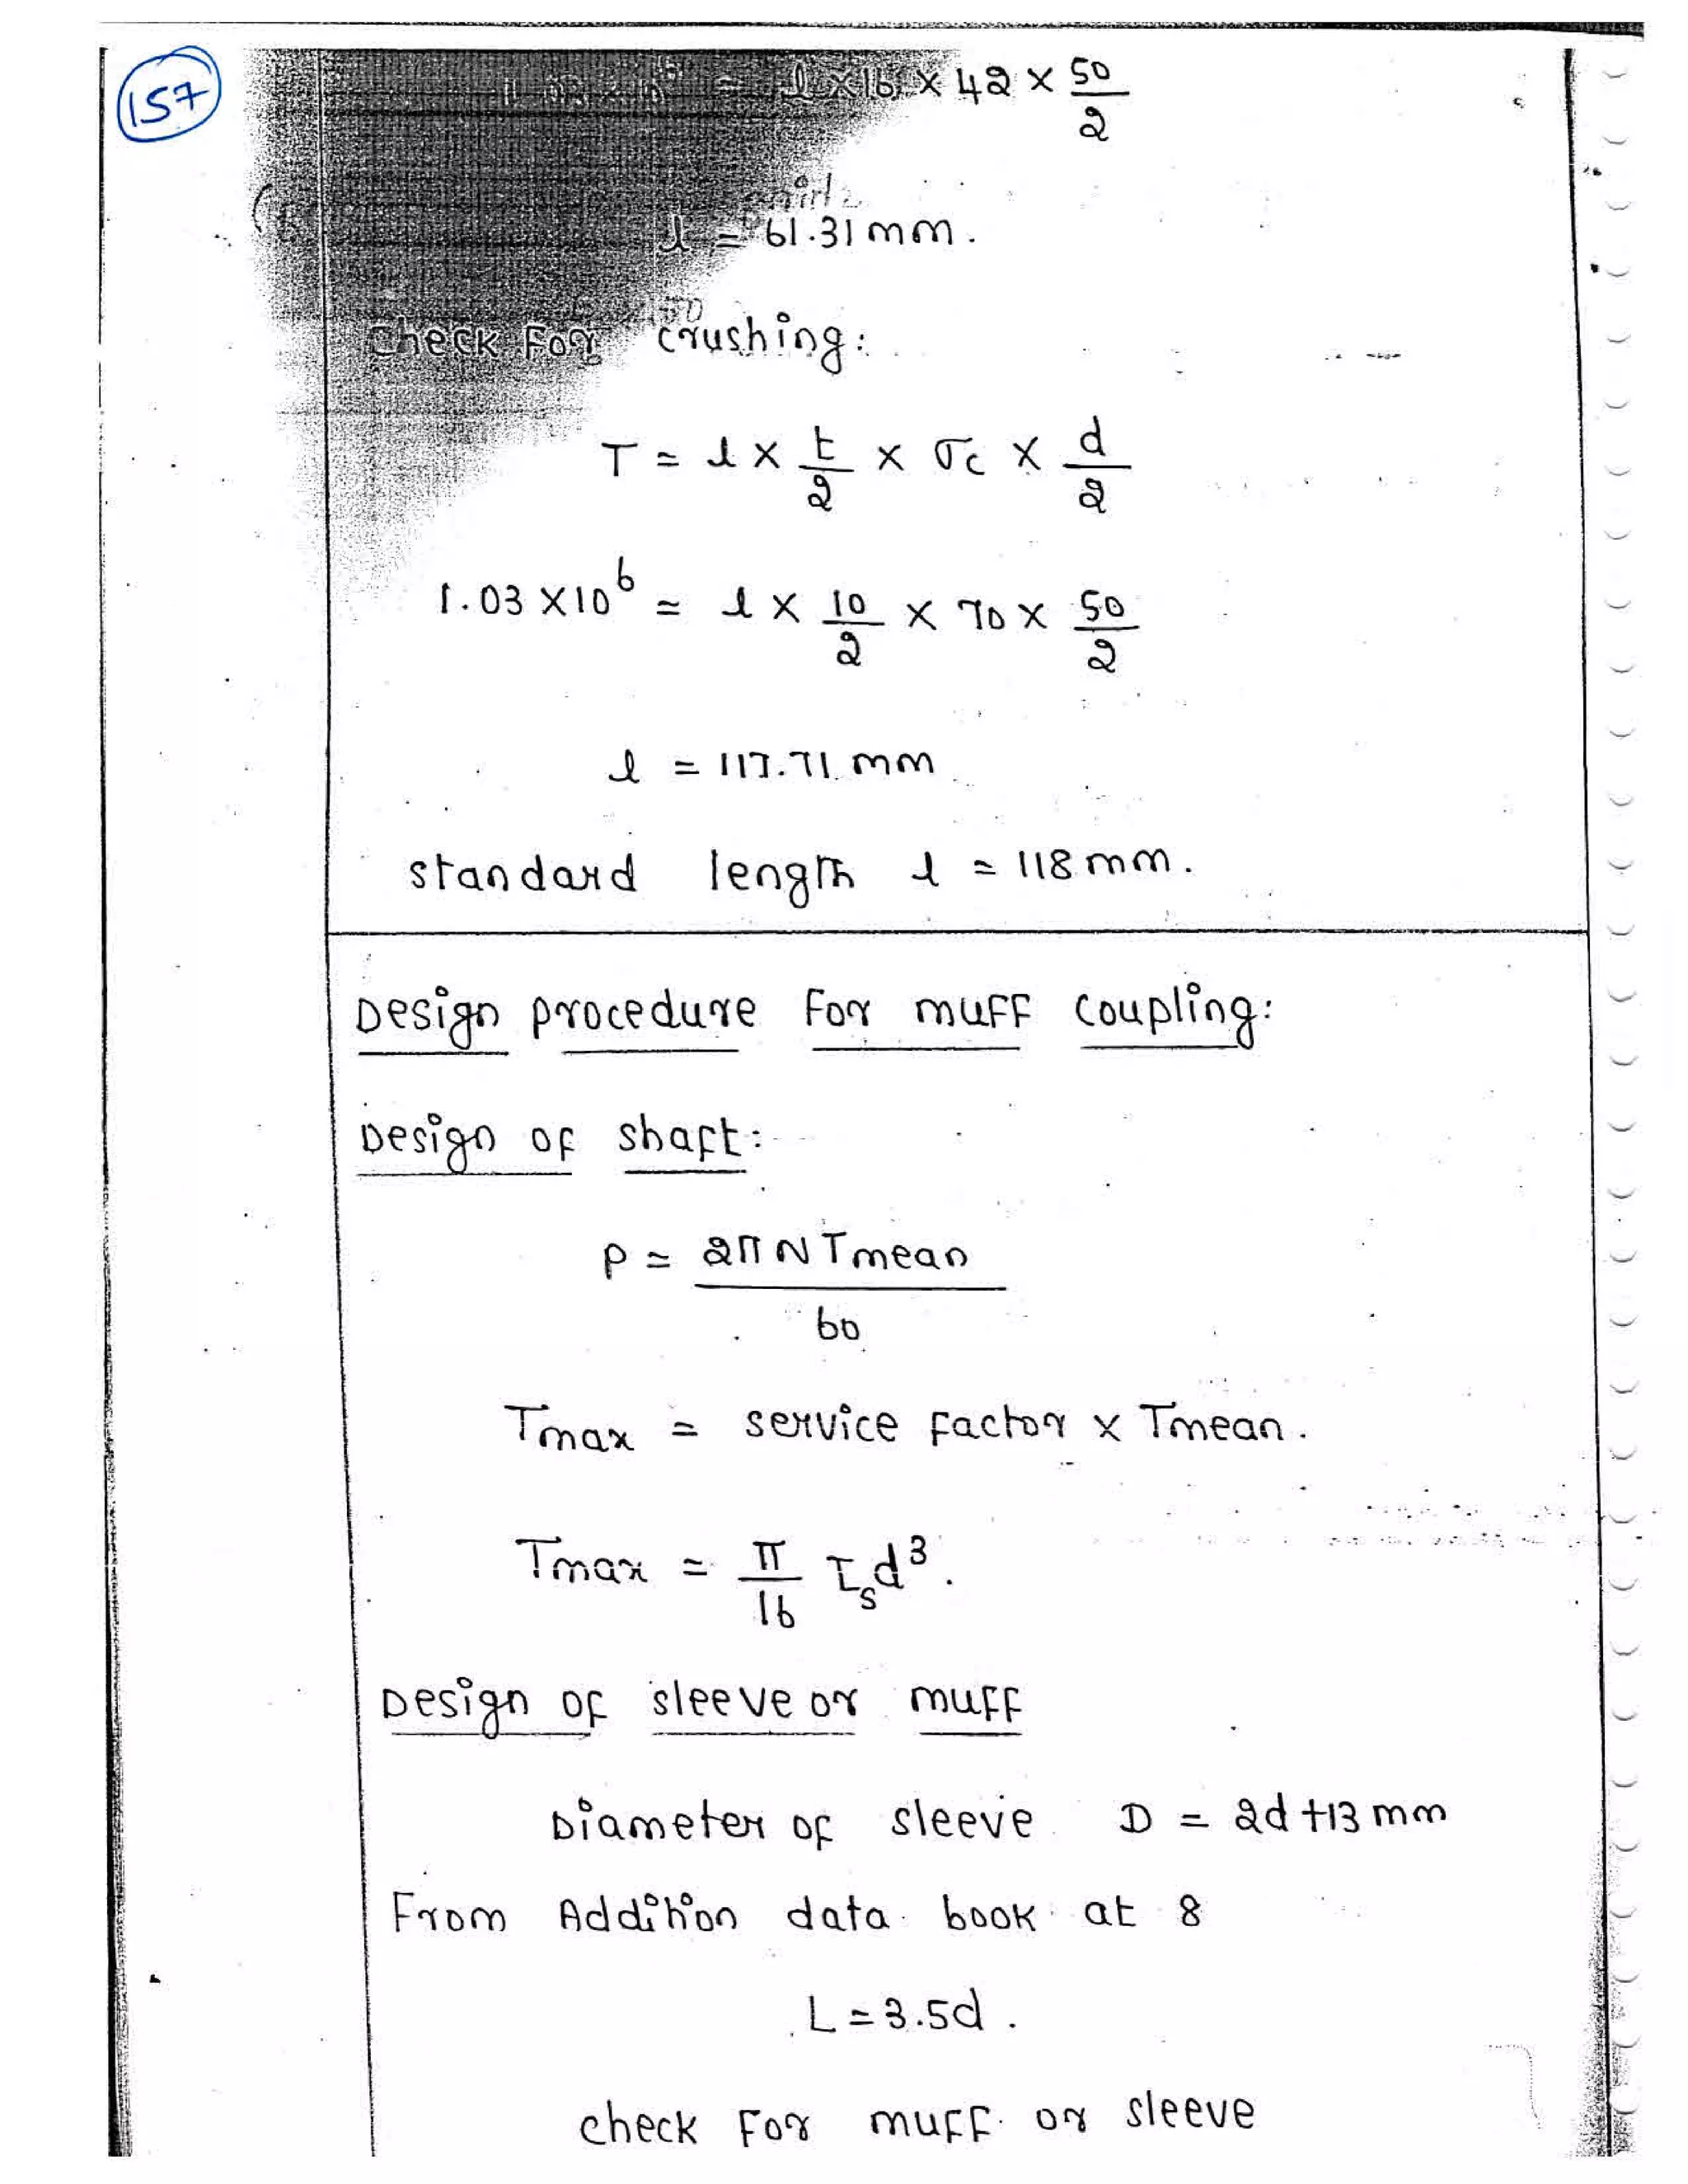 157
1.03 × 10⁶ = l × 16 × 42 × 50/2
l = 61.31 mm.
Check For crushing:
T = l × t/2 × σc × d/2
1.03 × 10⁶ = l × 10/2 × 70 × 50/2
l = 117.71 mm
standard length l = 118 mm.
Design procedure For muff coupling:
Design of shaft:
P = 2π N Tmean / 60
Tmax = service factor × Tmean.
Tmax = π/16 τs d³.
Design of sleeve or muff
Diameter of sleeve D = 2d + 13 mm
From Addition data book at 8
L = 3.5d.
check For muff or sleeve